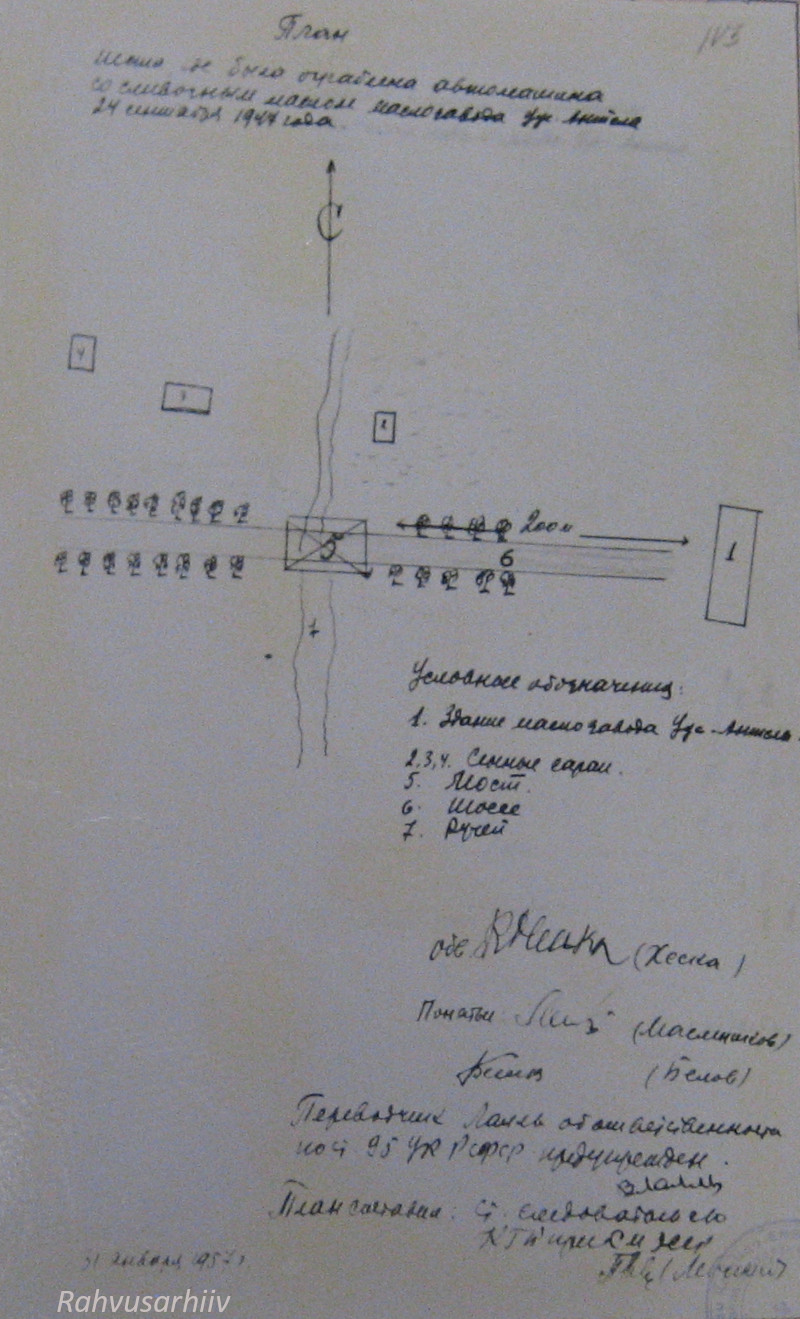 План
113
места где была ограблена автомашина
со сливочным маслом маслозавода Ур.-
24 сентября 1947 года.
С
4
3
2
200 м
5
6
1
7
Условные обозначения:
1. Здание маслозавода Ур.-
2,3,4. Сенные сараи.
5. Мост.
6. Шоссе
7. Ручей
обв. (Хеска)
Понятые (Масленников)
Белов (Белов)
Переводчик Лаань об ответственности
по ст 95 УК РСФСР предупрежден.
План составил: Ст. следователь
КГБ при СМ ЭССР
31 января 1957 г.
Rahvusarhiiv